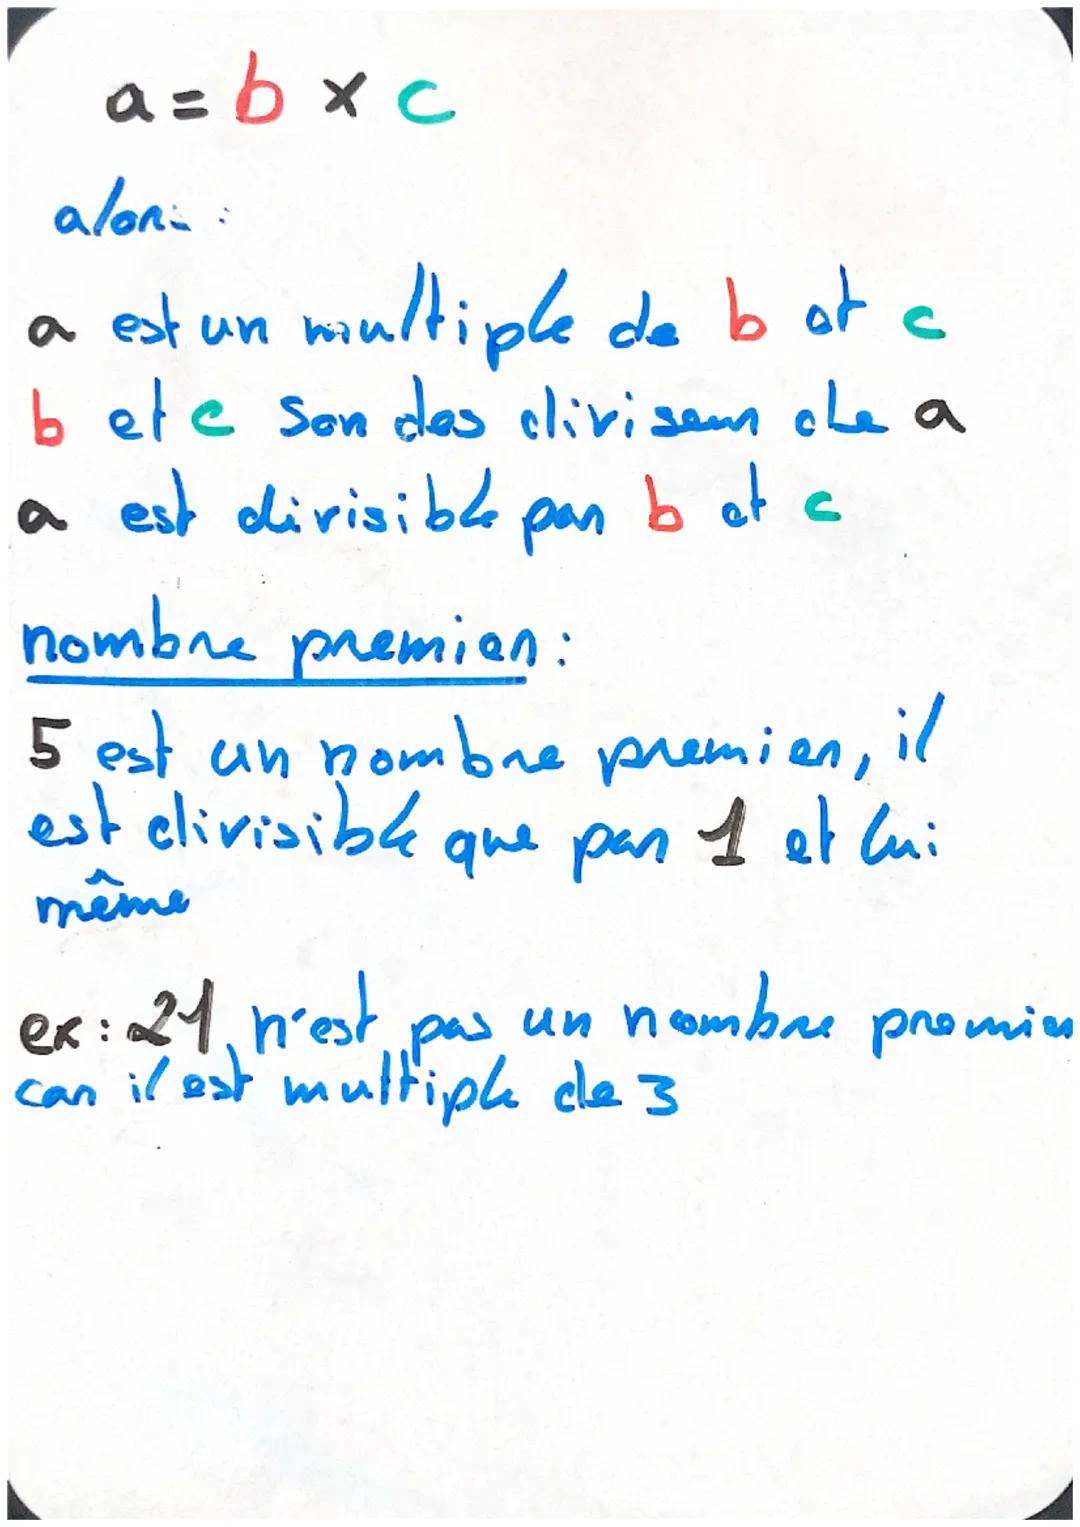 a = b × c
alors :
a est un multiple de b et c
b et c son des diviseur de a
a est divisible par b et c
nombre premier :
5 est un nombre premier, il
est divisible que par 1 et lui
même
ex : 21, n'est pas un nombre premier
car il est multiple de 3